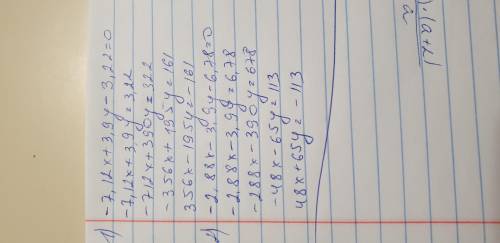 1) -7,12x+3,9y-3,22=0
-7,12x+3,9y=3,22
-712x+390y=322
-356x+195y=161
356x-195y=-161
2) -2,88x-3,9y-6,78=0
-2,88x-3,9y=6,78
-288x-390y=678
-48x-65y=113
48x+65y=-113